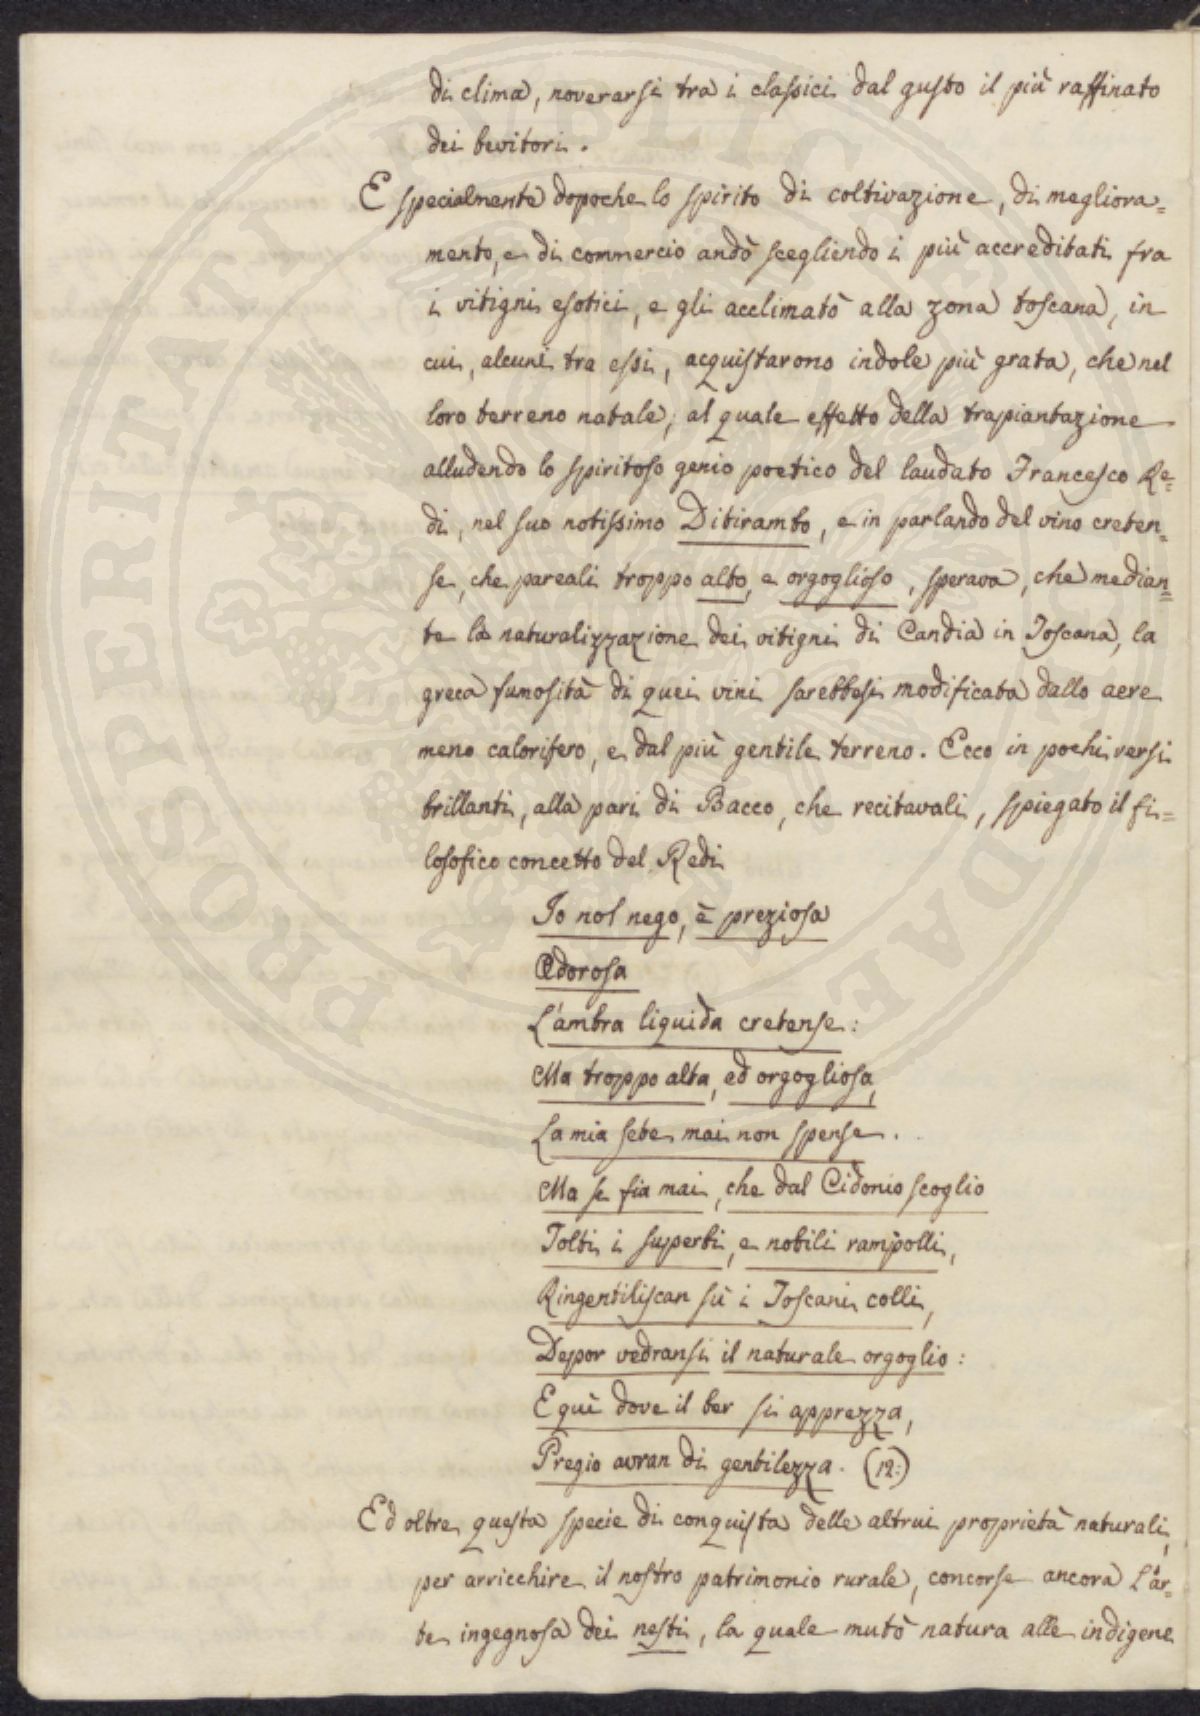 di clima, noverarsi tra i classici dal gusto il più raffinato
dei bevitori.
E specialmente dopoche lo spirito di coltivazione, di megliora=
mento, e di commercio andò scegliendo i più accreditati fra
i vitigni esotici, e gli acclimatò alla zona toscana, in
cui, alcuni tra essi, acquistarono indole più grata, che nel
loro terreno natale; al quale effetto della trapiantazione
alludendo lo spiritoso genio poetico del laudato Francesco Re=
di, nel suo notissimo Ditirambo, e in parlando del vino creten=
se, che pareali troppo alto, e orgoglioso, sperava, che median=
te la naturalizzazione dei vitigni di Candia in Toscana, la
greca fumosità di quei vini sarebbesi modificata dallo aere
meno calorifero, e dal più gentile terreno. Ecco in pochi versi
brillanti, alla pari di Bacco, che recitavali, spiegato il fi=
losofico concetto del Redi
Io nol nego, è preziosa
Odorosa
L'ambra liquida cretense:
Ma troppo alta, ed orgogliosa,
La mia sete mai non spense.
Ma se fia mai, che dal Cidonio scoglio
Tolti i superbi, e nobili rampolli,
Ringentiliscan sù i Toscani colli,
Depor vedransi il naturale orgoglio:
E quì dove il ber si apprezza,
Pregio avran di gentilezza. (12:)
Ed oltre questa specie di conquista delle altrui proprietà naturali,
per arricchire il nostro patrimonio rurale, concorse ancora l'ar=
te ingegnosa dei nesti, la quale mutò natura alle indigene
PROSPERITATI PUBLICAE AUGENDAE